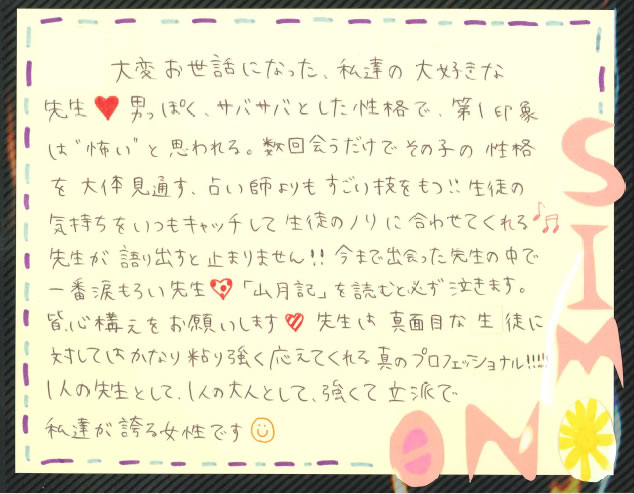 大変お世話になった、私達の大好きな
先生♥男っぽく、サバサバとした性格で、第1印象
は"怖い"と思われる。数回会うだけでその子の性格
を大体見通す、占い師よりもすごい技をもつ!!生徒の
気持ちをいつもキャッチして生徒のノリに合わせてくれる♪♫
先生が語り出すと止まりません!!今まで出会った先生の中で
一番涙もろい先生♥「山月記」を読むと必ず泣きます。
皆、心構えをお願いします♥先生は真面目な生徒に
対してはかなり粘り強く応えてくれる真のプロフェッショナル!!!!
1人の先生として、1人の大人として、強くて立派で
私達が誇る女性です☺
SIMONO